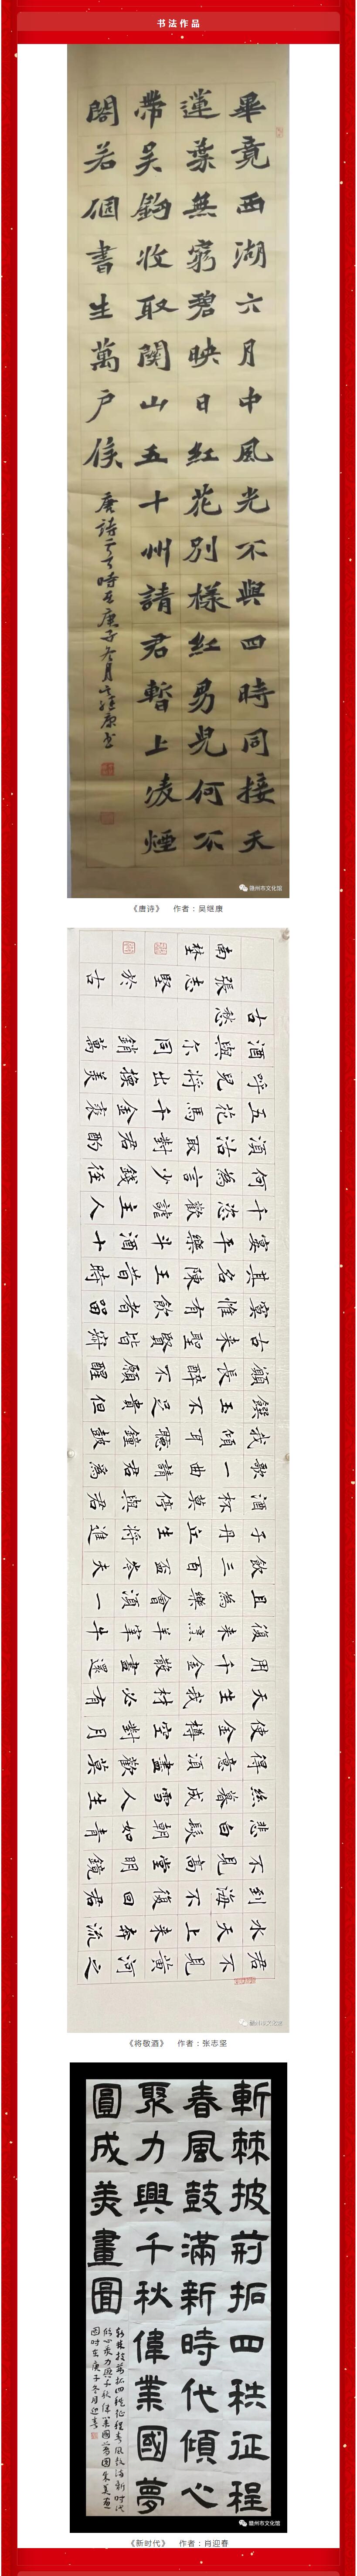 书法作品
畢竟西湖六月中風光不與四時同接天
蓮葉無窮碧映日紅花別樣紅男兒何不
帶吳鉤收取關山五十州請君暫上凌煙
閣若個書生萬戶侯
唐詩二首時在庚子冬月吳繼康書
赣州市文化馆
《唐诗》 作者：吴继康
君不見黃河之
水天上來奔流
到海不復回君
不見高堂明鏡
悲白髮朝如青
絲暮成雪人生
得意須盡歡莫
使金樽空對月
天生我材必有
用千金散盡還
復來烹羊宰牛
且為樂會須一
飲三百杯岑夫
子丹丘生將進
酒杯莫停與君
歌一曲請君為
我傾耳聽鐘鼓
饌玉不足貴但
願長醉不願醒
古來聖賢皆寂
寞惟有飲者留
其名陳王昔時
宴平樂斗酒十
千恣歡謔主人
何為言少錢徑
須沽取對君酌
五花馬千金裘
呼兒將出換美
酒與爾同銷萬
古愁
張志堅於古
南埜
《将敬酒》 作者：张志坚
斬棘披荊拓四秩征程
春風鼓滿新時代傾心
聚力興千秋偉業國夢
圓成美畫圖
赣州市文化馆
《新时代》 作者：肖迎春